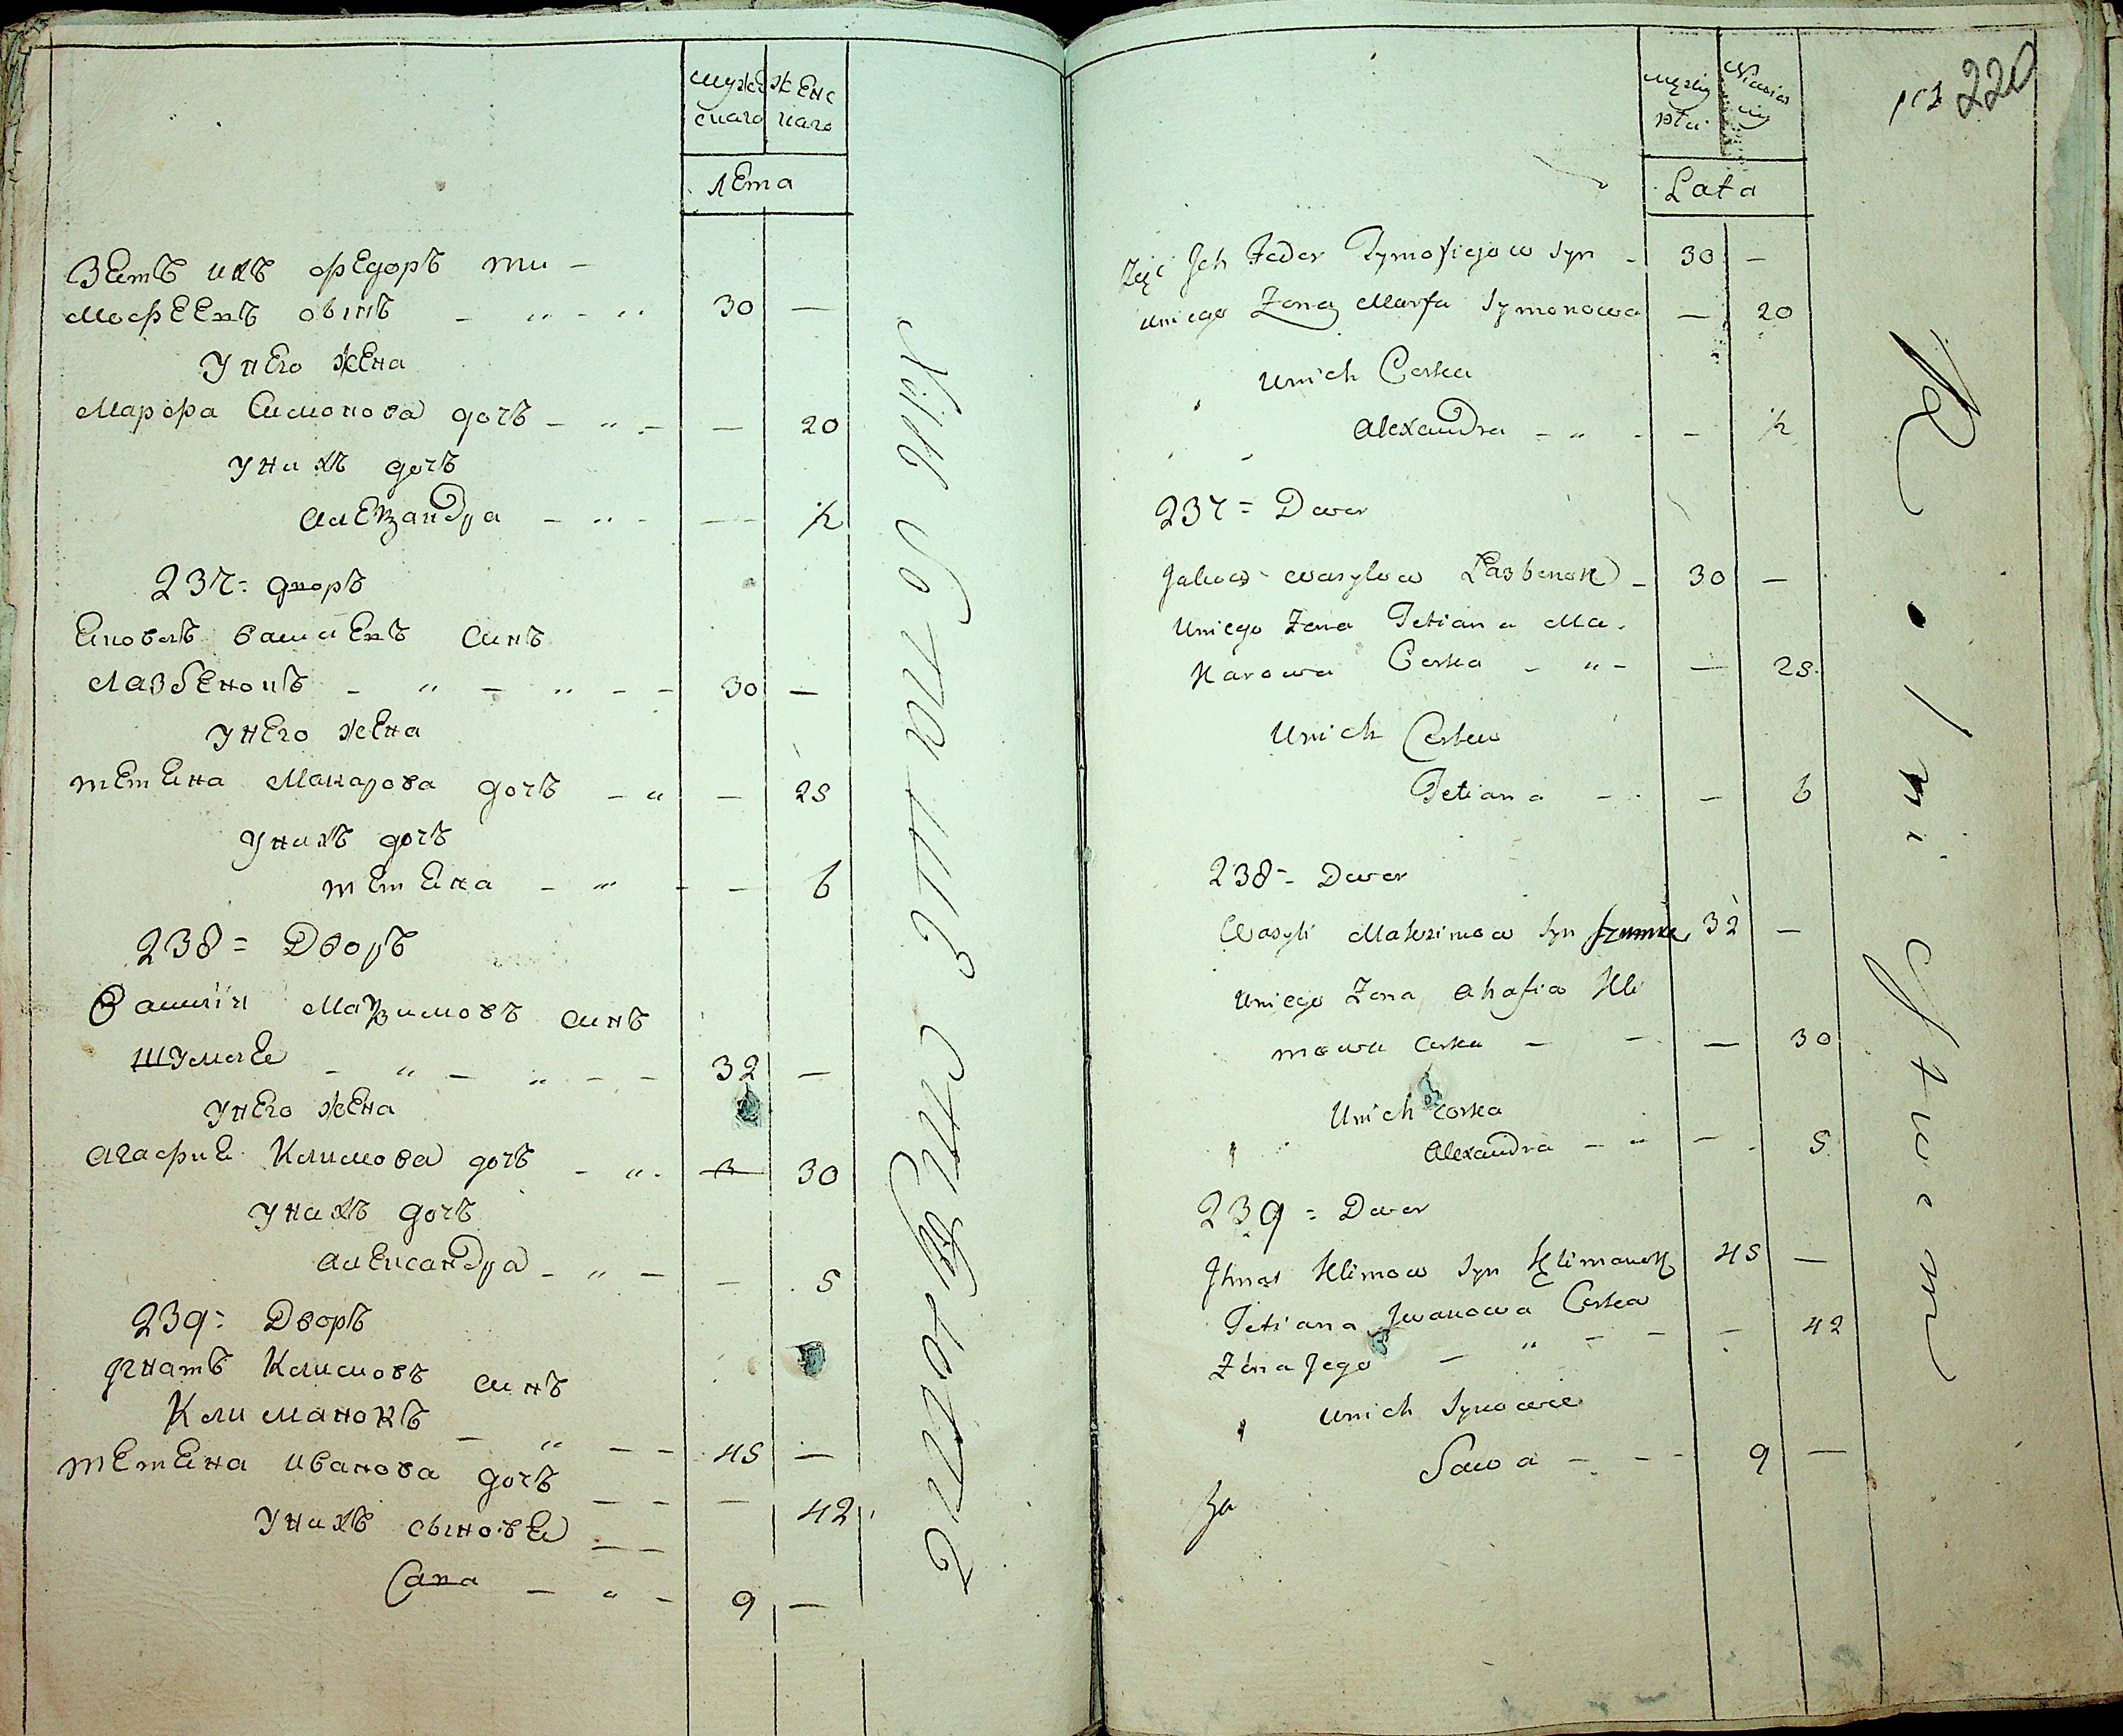 мужес женс
скаго каго
лета
Зеть ихъ федоръ ти –
мофеевъ сынъ – „ – „ 30 —
у него жена
Марфа Симонова дочъ – „ – — 20
у нихъ дочъ
Алеѯандра – „ – — ½
237: дворъ
Ековъ Василевъ синъ
Лазбенокъ – „ – „ – – 30 —
у него жена
тетеяна Макарова дочъ – „ — 25
у нихъ дочъ
тетеяна – „ – — 6
238 = Дворъ
Василiй Маѯимовъ синъ
Шумске – „ – „ – – 32 —
у него жена
Агафия Климова дочъ – „ – — 30
у нихъ дочъ
Александра – „ – — 5
239: Дворъ
Игнатъ Климовъ синъ
Климанокъ – „ – – 45 —
тетеяна Иванова дочъ – – — 42
у нихъ сынове – –
Сава – „ – 9 —
męzkiey Niewies
płci ciey
Lata
220
Zięć Ich Feder Tymofiejow Syn – 30 —
u niego Zona Marfa Symonowa — 20
u nich Corka
Alexandra – „ – — ½
237 = Dwor
Jakow Wasylow Łazbenok – 30 —
u niego Zona Tetiana Ma-
karowa Corka – „ – — 25
u nich Corka
Tetiana – – — 6
238 = Dwor
Wasyli Maksimow Syn Szumske 32 —
u niego Zona Ahafia Kli
mowa Corka – – — 30
u nich Corka
Alexandra – „ – — 5
239 = Dwor
Ihnat Klimow Syn Klimanok 45 —
Tetiana Iwanowa Corka
Zona Jego – „ – – — 42
u nich Synowie
Sawa – – – 9 —